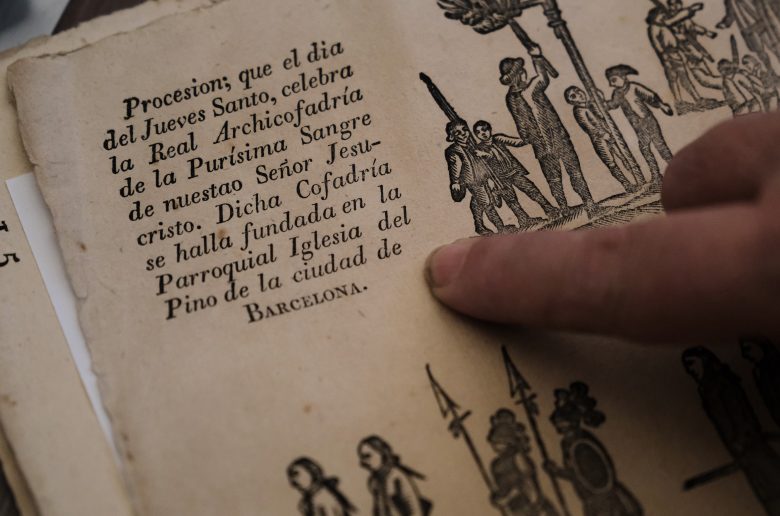 Procesion; que el dia
del Jueves Santo, celebra
la Real Archicofadría
de la Purísima Sangre
de nuestao Señor Jesu-
cristo. Dicha Cofadría
se halla fundada en la
Parroquial Iglesia del
Pino de la ciudad de
BARCELONA.